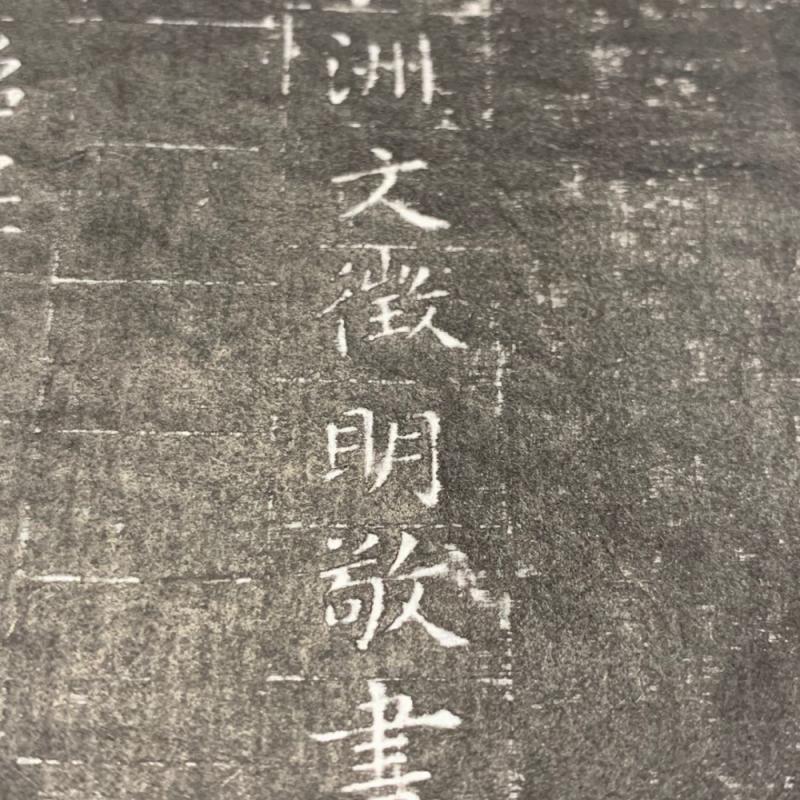 洲文徵明敬書